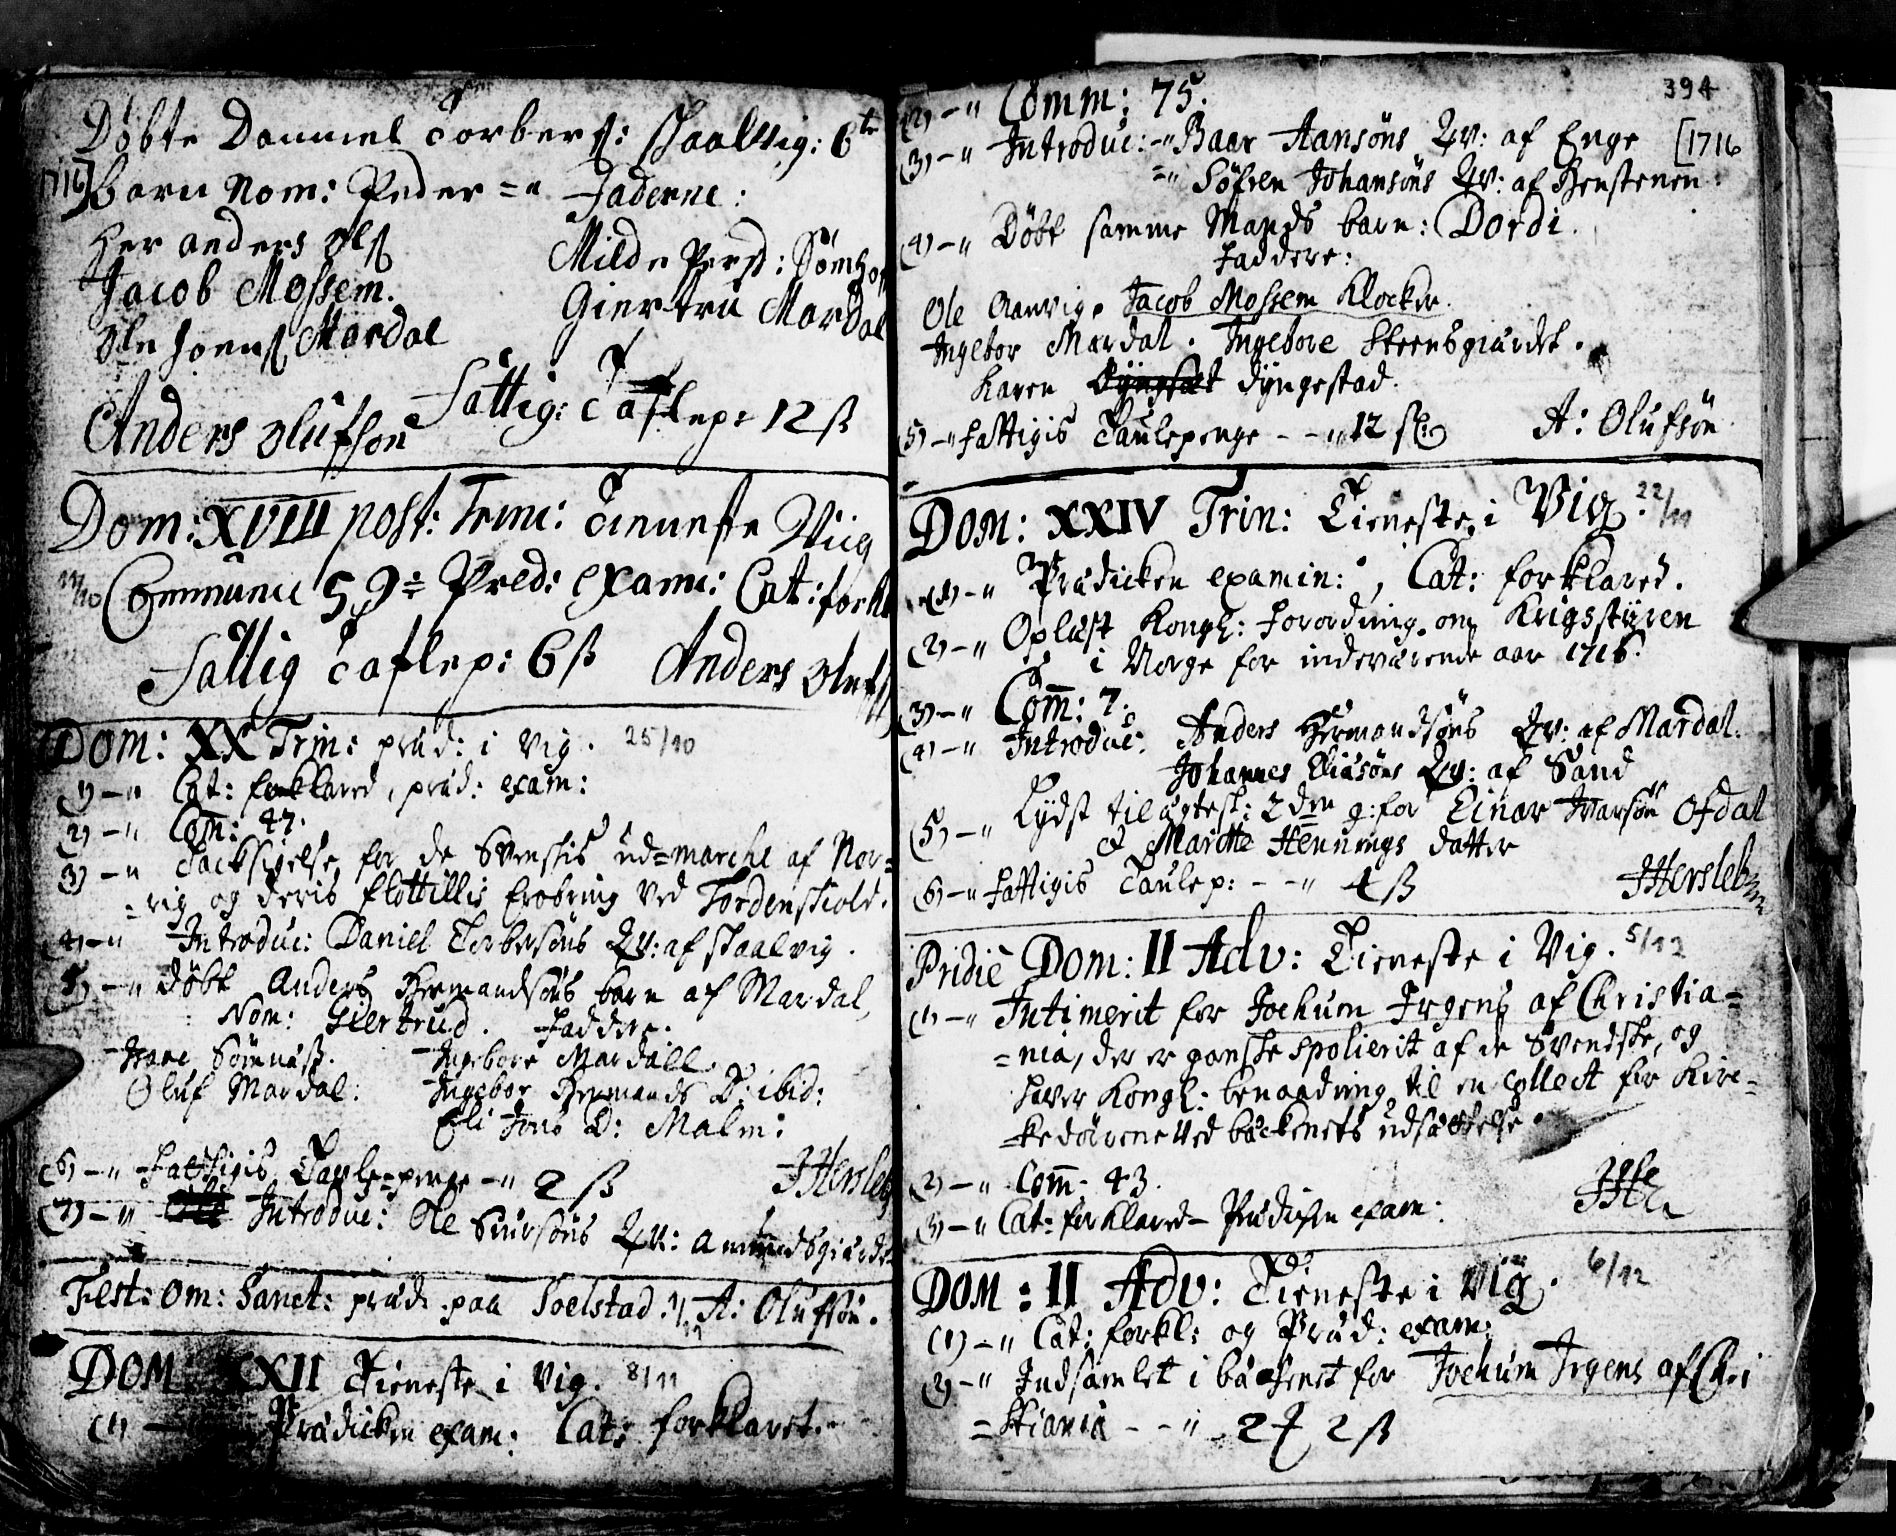 Døbte Danniel Torbers: Skaalvig: 6te
1716] barn Nom: Peder =" Faderne:
Her anders Ols
Jacob Mossem.
Ole Joens Mardal
Milde Persd: Sømhof
Giertru Mardal
Anders Olufson
Fattig: Taflep: 12 ß
Dom: XVIII post: Trini: Tienneste Viig
11/10 Communic 59 = Pred: Exami: Cat: forkl
Fattig Taflep: 6 ß Anders Olufs
Dom: XX Trin: præd: i Vig. 25/10
(1) -" Cat: forklared, præd: exam:
(2) -" Com̄: 47.
(3) -" Tacksigelse for de Svenskis ud=marche af Nor=
=rig og deris flottillis Erobring ved Tordenskiold.
(4) -" Introduc: Daniel Torbersøns Qv: af Skaalvig.
(5) -" Døbt Anders Hermandsøns barn af Mardal,
Nom: Giertrud. Faddere.
Hans Sømnæss. Ingebore Mardall.
Oluf Mardal: Ingebor Hermands D: ibid:
Eli Jons D: Malm:
(6) -" Fattigis Tavle=penge -" 2 ß JHersleb
(7) -" Introduc: Ole Siursøns Qv: Amundsgiærdet
Fest: Om: Sanct: præd: paa Soelstad. 1/11 A: Olufsøn.
DOM: XXII Tieneste i Vig. 8/11
(1) - Prædicken exam: Cat: forklaret.
394
(2) -" Comm: 75.
(3) -" Introduc: -" Baar Hansøns Qv: af Enge [1716
=" Søfren Johansøns Qv: af Henstenen.
(4) -" Døbt samme Mands barn: Dordi.
Faddere:
Ole Aanvig. Jacob Mossem Klocker.
Ingebor Mardal. Ingebore Steensgiærdet.
Karen Dyngestad.
(5) -" Fattigis Taulepenge - -" 12 sk A: Olufsøn
DOM: XXIV Trin: Tieneste i Vig. 22/11
(1) -" Prædicken examin:, Cat: forklared.
(2) -" Oplæst Kongl: Forordning om Krigsstyren
i Norge for indeværende aar 1716.
(3) -" Com̄: 7.
(4) -" Introduc: Anders Hermandsøns Qv: af Mardal.
Johannes Eliasøns Qv: af Sand
(5) -" Lydst til ægtesk: 2den g: for Einar Ivarsøn Ofdal
& Maritte Hennings datter
(6) -" Fattigis Taulep: - -" 4 ß JHersleb
Pridie Dom: II Adv: Tieneste i Vig. 5/12
(1) -" Intimerit for Jochum Irgens af Christia=
=nia, der er ganske spolierit af de Svendske, og
hafver Kongl: benaadning til en collect for Kirc=
=kedørene ved bæckenets udsættelse.
(2) -" Com̄: 43.
(3) -" Cat: forklared - Prædicken exam: JHe
DOM: II Adv: Tieneste i Vig. 6/12
(1) -" Cat: forkl: og Præd: exam:
(2) -" Indsamlet i bæckenet for Jochum Irgens af Chri
=stiania - -" 2 ₰ 2 ß